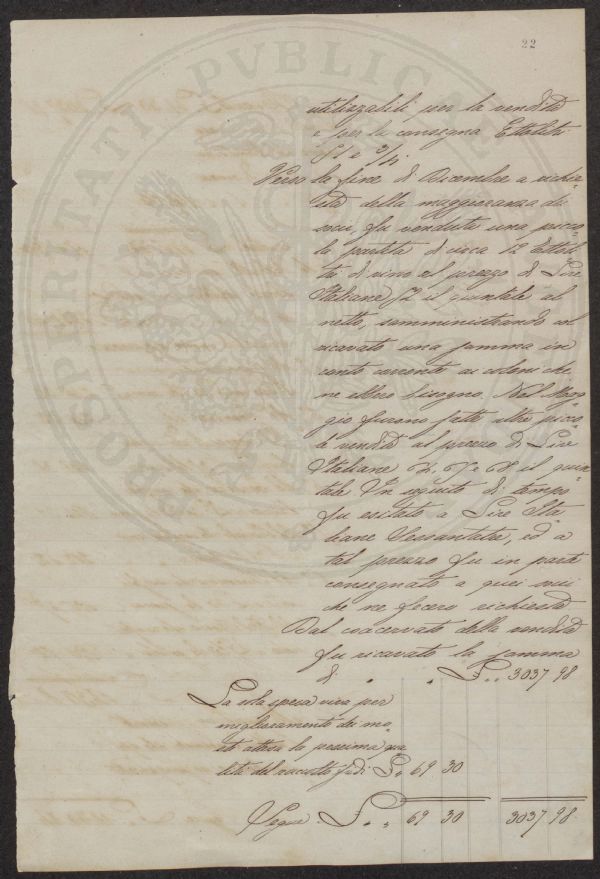 22
PROSPERITATI PVBLICAE
utilizzabili per la vendita
e per la consegna Ettolitri
Verso la fine di Dicembre a richie=
sta della maggioranza dei
soci, fu venduta una picco=
la partita di circa 12 Ettoli=
tri di vino al prezzo di Lire
Italiane 72 il quintale al
netto, somministrando col
ricavato una somma in
conto corrente ai coloni che
ne ebbero bisogno. Nel Mag=
gio furono fatte altre picco=
le vendite al prezzo di Lire
Italiane 67 e 68 il quin=
tale. In seguito di tempo
fu esitato a Lire Ita
liane Sessantatre, ed a
tal prezzo fu in parte
consegnato a quei soci
che ne fecero richiesta
Dal coacervato delle vendite
fu ricavato la somma
di " " L.. 3037 98
La sola spesa viva per
miglioramento dei mo=
sti attesa la pessima qua
lità del raccolto fu di L. 69 30
Segue L.. 69 30 3037 98